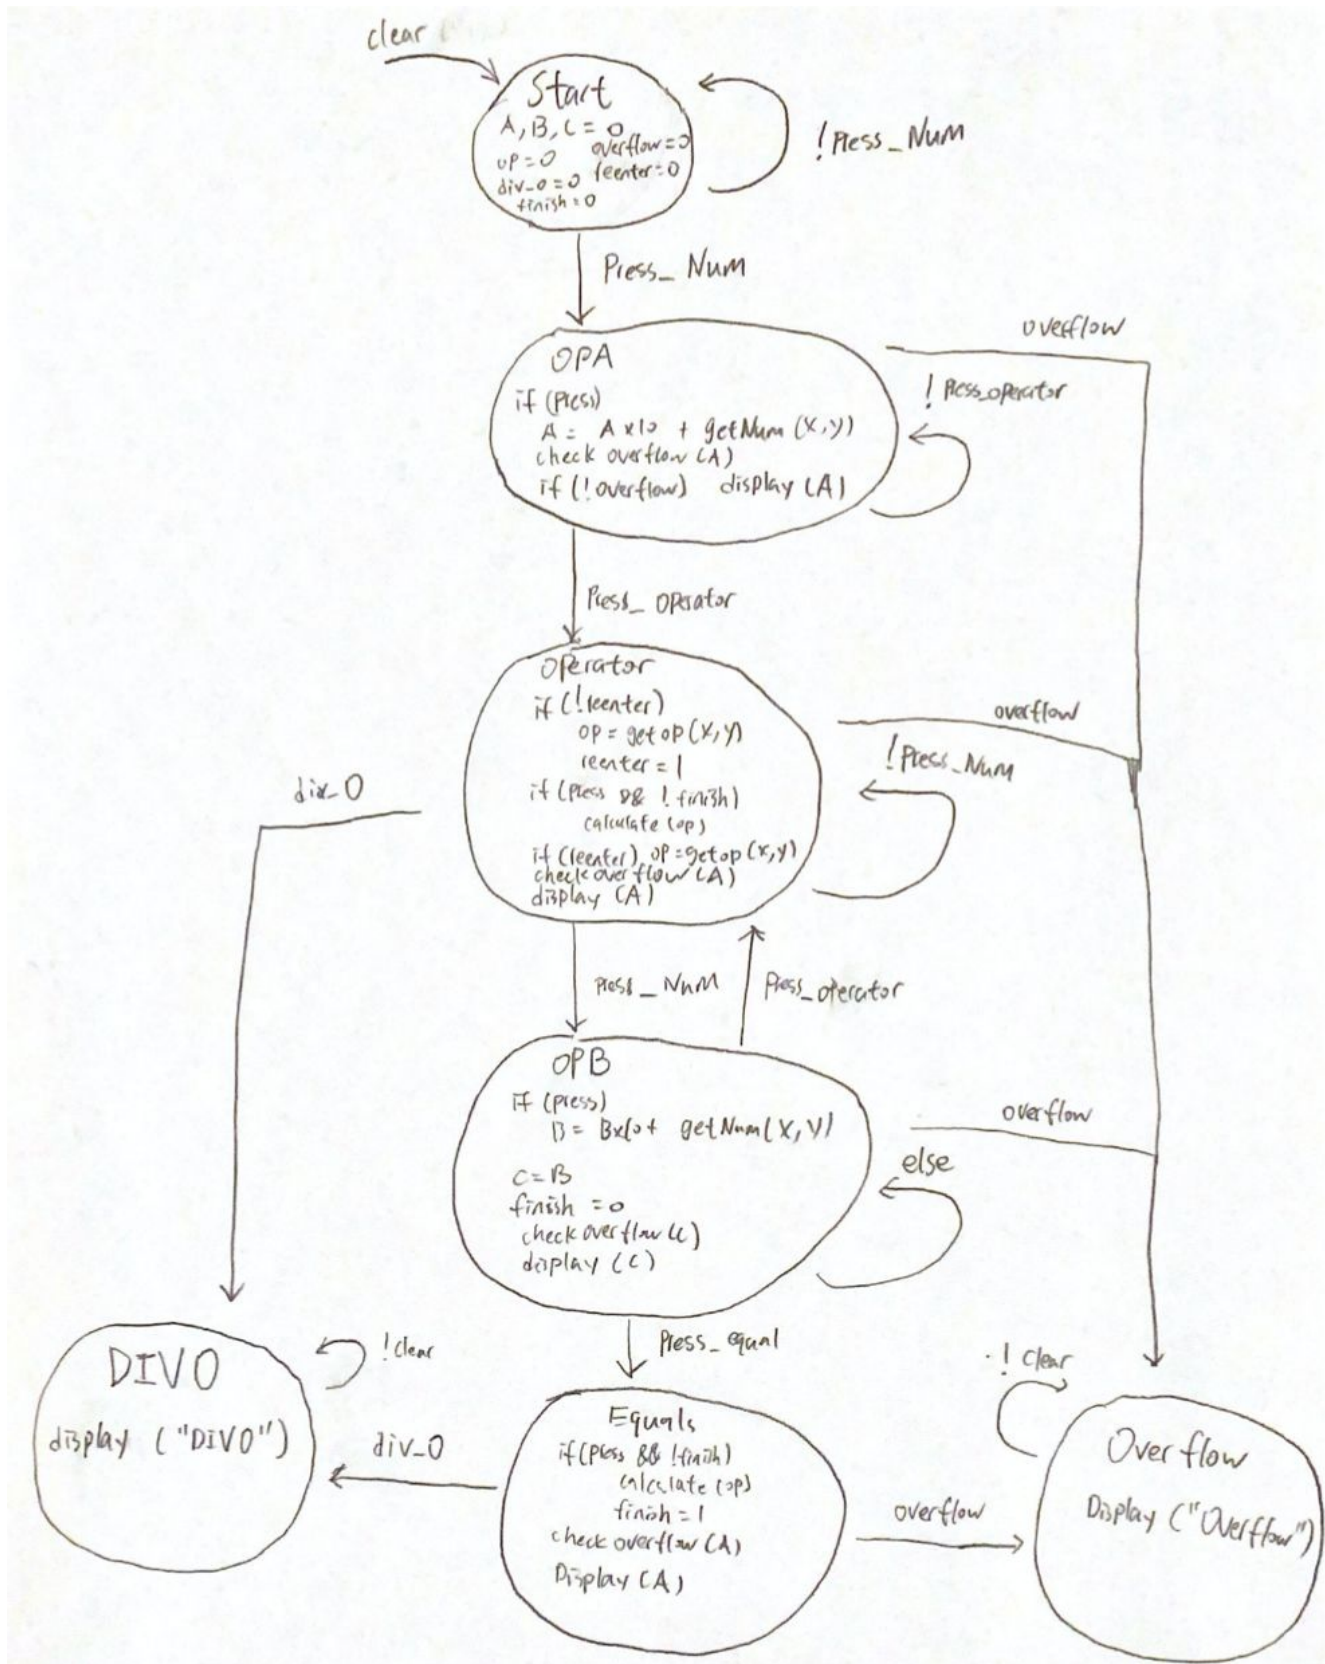 clear
Start
A, B, C = 0
overflow=0
op=0
reenter=0
div_0=0
finish=0
!Press_Num
Press_Num
OPA
if (press)
A = Ax10 + getNum(x,y)
check overflow (A)
if (!overflow) display (A)
overflow
!Press_operator
Press_operator
operator
if (!reenter)
op = getop(x,y)
reenter = 1
if (press && !finish)
calculate (op)
if (reenter) op=getop(x,y)
check overflow (A)
display (A)
overflow
!Press_Num
div_0
Press_Num
Press_operator
OPB
if (press)
B = Bx10+ getNum(x,y)
C=B
finish =0
check overflow (C)
display (C)
overflow
else
Press_equal
DIV0
display ("DIV0")
!clear
div_0
Equals
if(press && !finish)
calculate (op)
finish=1
check overflow (A)
Display (A)
overflow
!clear
Overflow
Display ("Overflow")